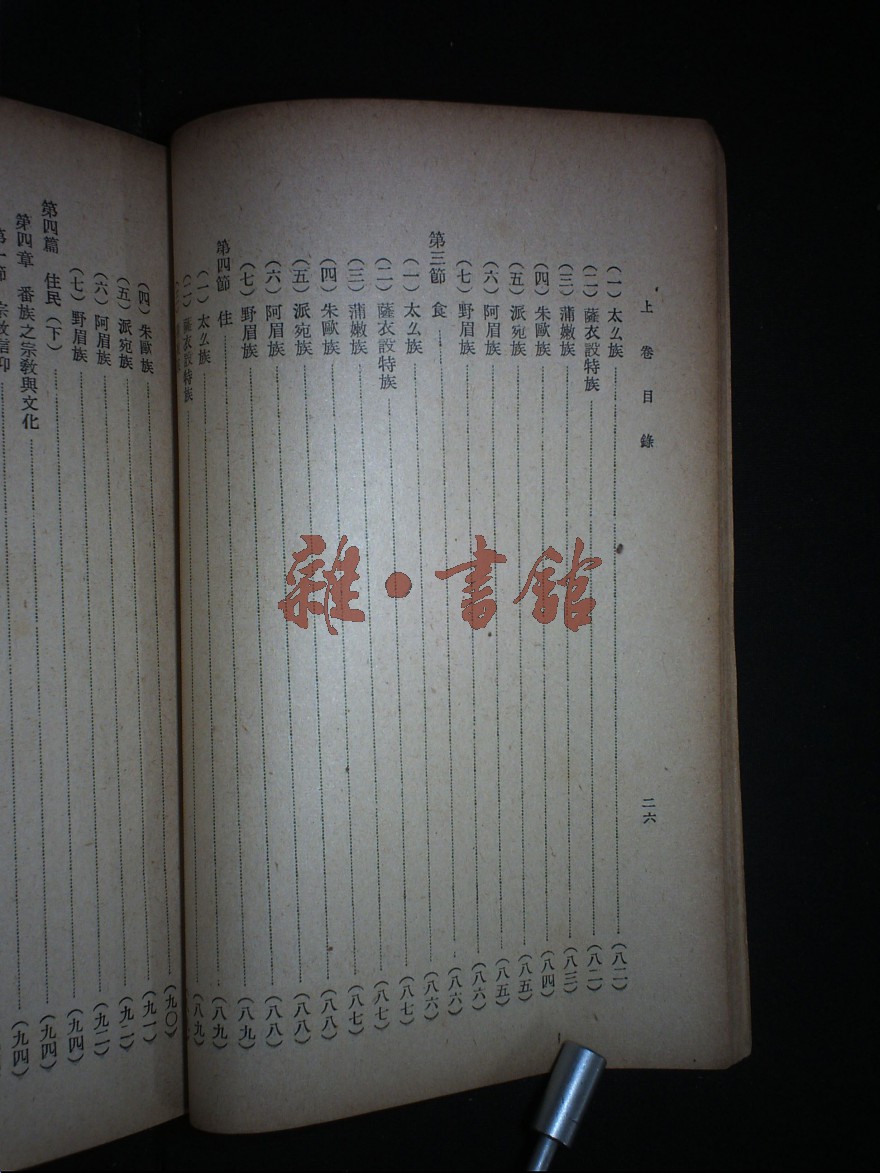 上卷目錄 二六
(一)太么族……(八二)
(二)薩衣設特族……(八二)
(三)蒲嫩族……(八三)
(四)朱歐族……(八四)
(五)派宛族……(八五)
(六)阿眉族……(八五)
(七)野眉族……(八六)
第三節 食……(八六)
(一)太么族……(八六)
(二)薩衣設特族……(八七)
(三)蒲嫩族……(八七)
(四)朱歐族……(八七)
(五)派宛族……(八八)
(六)阿眉族……(八八)
(七)野眉族……(八八)
第四節 住……(八九)
(一)太么族……(八九)
(二)薩衣設特族……(八九)
(四)朱歐族……(九〇)
(五)派宛族……(九一)
(六)阿眉族……(九二)
(七)野眉族……(九二)
第四篇 住民(下)……(九四)
第四章 番族之宗教與文化……(九四)
第一節 宗教信仰……(九四)
雜·書館